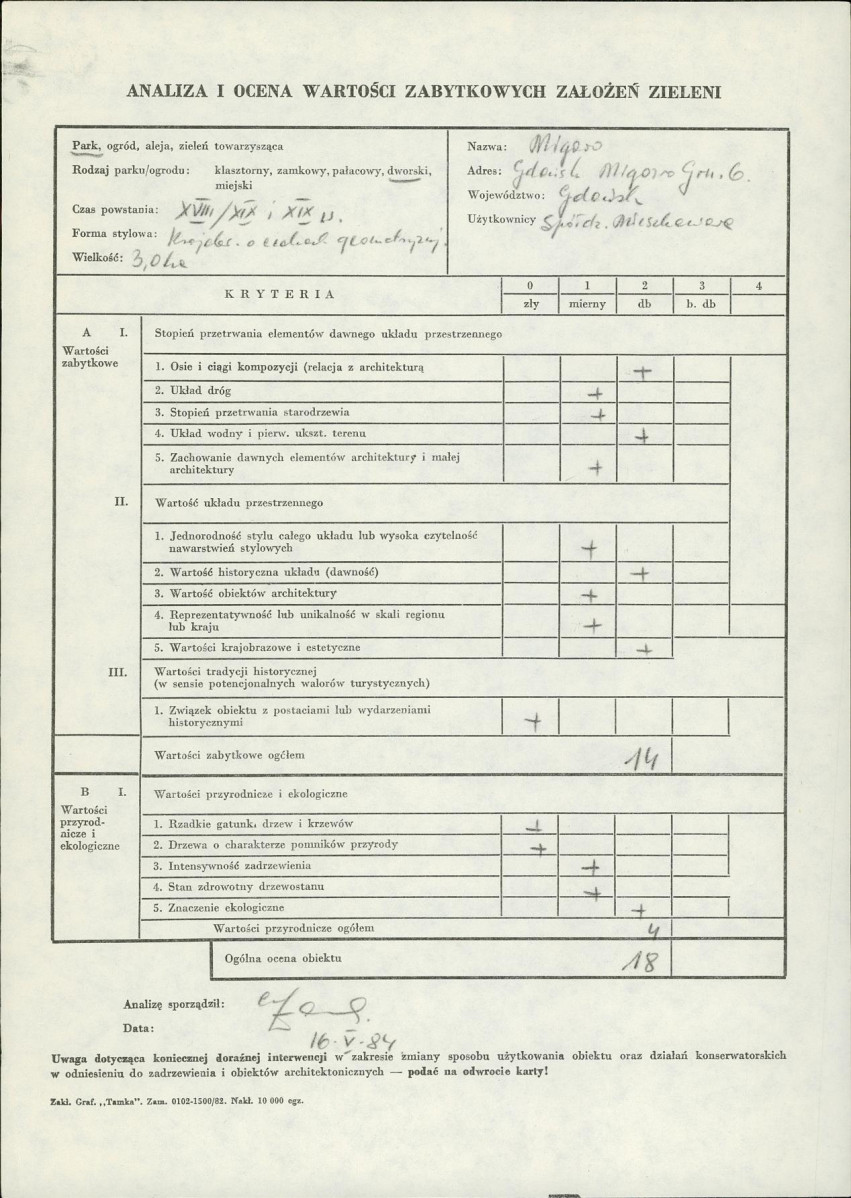 ANALIZA I OCENA WARTOŚCI ZABYTKOWYCH ZAŁOŻEŃ ZIELENI
Park, ogród, aleja, zieleń towarzysząca
Rodzaj parku/ogrodu: klasztorny, zamkowy, pałacowy, dworski,
miejski
Czas powstania: XVIII/XIX i XIX w.
Forma stylowa: Krajob. o cechach geometrycznej.
Wielkość: 3,0 ha
Nazwa: Migowo
Adres: Gdańsk Migowo Grn. 6.
Województwo: Gdańsk
Użytkownicy Spółdz. Mieszkaniowa
KRYTERIA
0 1 2 3 4
zły mierny db b. db
A I. Stopień przetrwania elementów dawnego układu przestrzennego
Wartości
zabytkowe
1. Osie i ciągi kompozycji (relacja z architekturą +
2. Układ dróg +
3. Stopień przetrwania starodrzewia +
4. Układ wodny i pierw. ukszt. terenu +
5. Zachowanie dawnych elementów architektury i małej
architektury +
II. Wartość układu przestrzennego
1. Jednorodność stylu całego układu lub wysoka czytelność
nawarstwień stylowych +
2. Wartość historyczna układu (dawność) +
3. Wartość obiektów architektury +
4. Reprezentatywność lub unikalność w skali regionu
lub kraju +
5. Wartości krajobrazowe i estetyczne +
III. Wartości tradycji historycznej
(w sensie potencjonalnych walorów turystycznych)
1. Związek obiektu z postaciami lub wydarzeniami
historycznymi +
Wartości zabytkowe ogółem 14
B I. Wartości przyrodnicze i ekologiczne
Wartości
przyrod-
nicze i
ekologiczne
1. Rzadkie gatunki drzew i krzewów +
2. Drzewa o charakterze pomników przyrody +
3. Intensywność zadrzewienia +
4. Stan zdrowotny drzewostanu +
5. Znaczenie ekologiczne +
Wartości przyrodnicze ogółem 4
Ogólna ocena obiektu 18
Analizę sporządził:
Data: 16.V.84
Uwaga dotycząca koniecznej doraźnej interwencji w zakresie zmiany sposobu użytkowania obiektu oraz działań konserwatorskich
w odniesieniu do zadrzewienia i obiektów architektonicznych — podać na odwrocie karty!
Zakł. Graf. „Tamka". Zam. 0102-1500/82. Nakł. 10 000 egz.